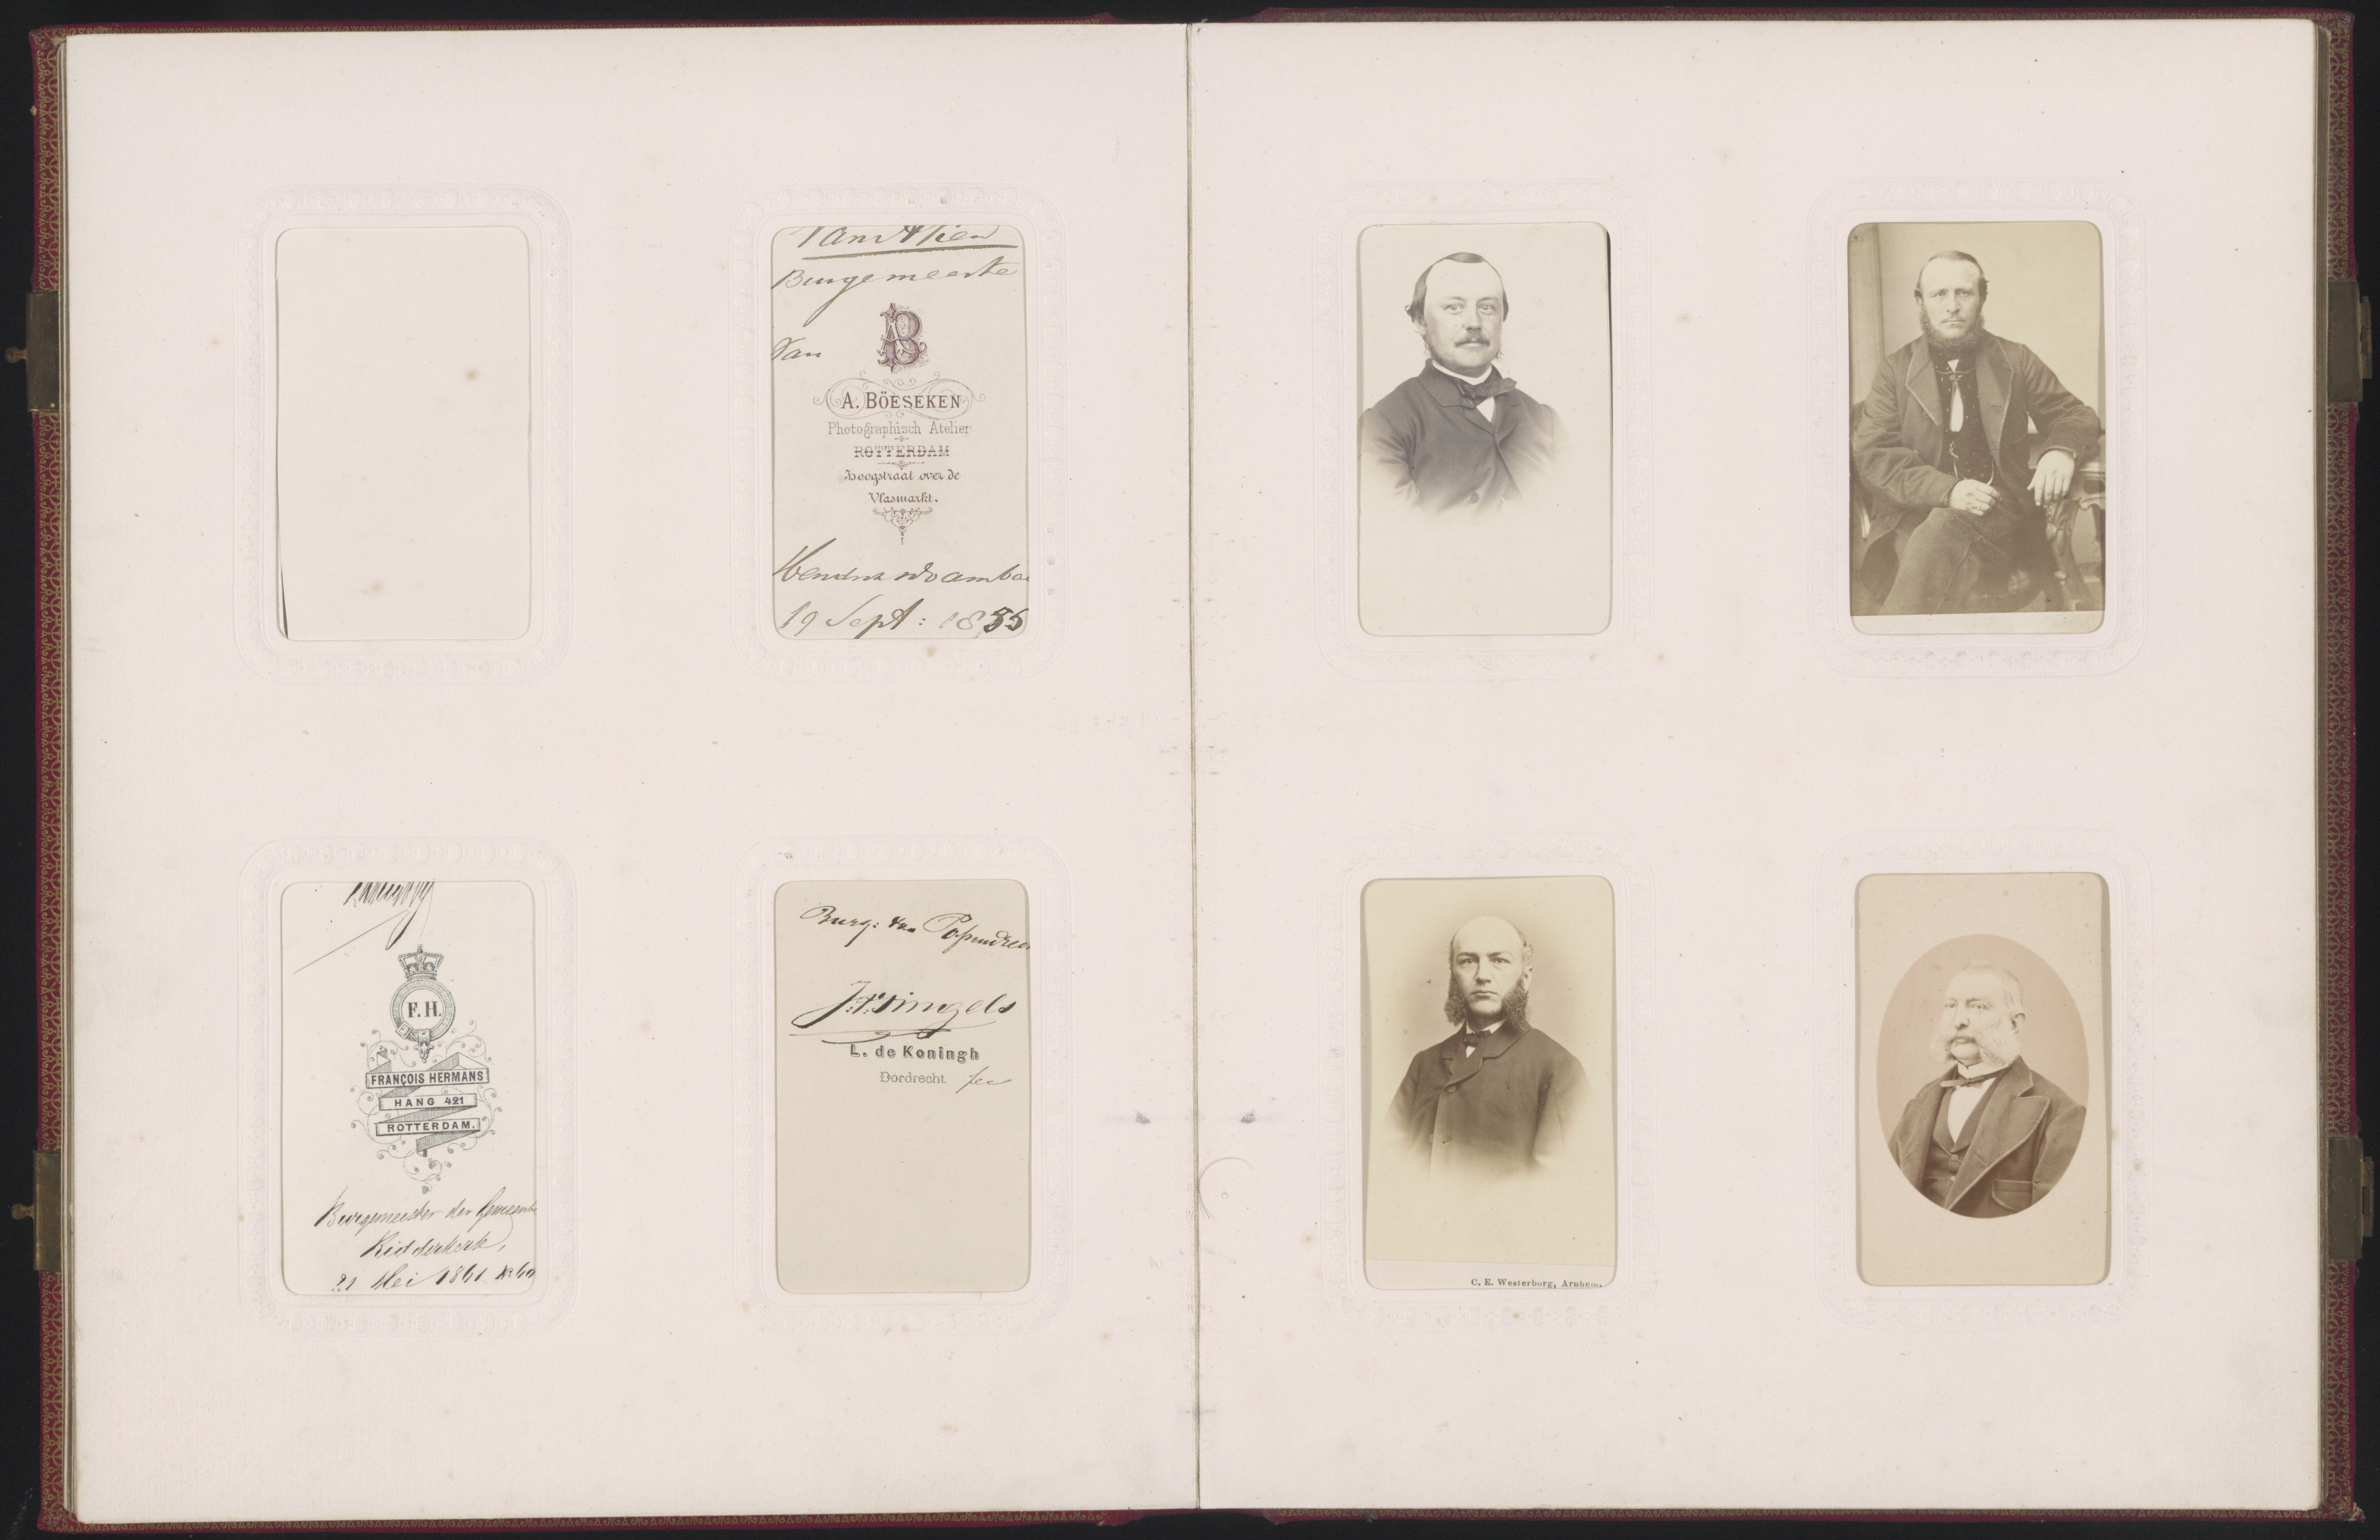 Burgemeeste
Van
AB
A. BÖESEKEN
Photographisch Atelier
ROTTERDAM
Hoogstraat over de
Vlasmarkt.
19 Sept: 1855
F. H.
FRANÇOIS HERMANS
HANG 421
ROTTERDAM.
Burgemeester der Gemeente
Ridderkerk,
21 Mei 1861 No 60
Burg: van Papendrec
L. de Koningh
Dordrecht
C. E. Westerborg, Arnhem.